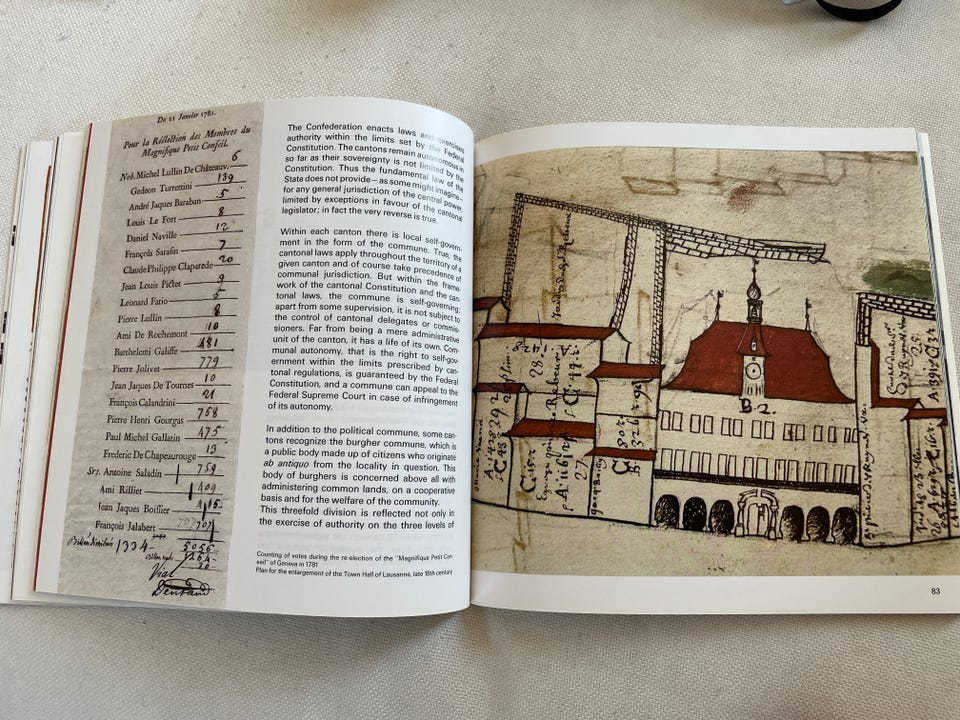 Du 21 Janvier 1781.
Pour la Réélection des Membres du
Magnifique Petit Conseil.
Nob. Michel Lullin De Châteauv. 6
Gedeon Turrettini 139
André Jaques Baraban 5
Louis Le Fort 8
Daniel Naville 12
François Sarasin 7
Claude Philippe Claparede 20
Jean Louis Pictet 9
Leonard Fario
Pierre Lullin 8
Ami De Rochemont 110
Barthelemi Galiffe 481
Pierre Jolivet 779
Jean Jaques De Tournes 10
François Calandrini 21
Pierre Henri Gourgas 758
Paul Michel Gallatin 475
Frederic De Chapeaurouge 13
Srs. Antoine Saladin 759
Ami Rilliet 409
Jean Jaques Boissier
François Jalabert
1334
The Confederation enacts laws and exercises
authority within the limits set by the Federal
Constitution. The cantons remain autonomous in
so far as their sovereignty is not limited by the
Constitution. Thus the fundamental law of the
State does not provide – as some might imagine –
for any general jurisdiction of the central power,
limited by exceptions in favour of the cantonal
legislator; in fact the very reverse is true.
Within each canton there is local self-govern-
ment in the form of the commune. True, the
cantonal laws apply throughout the territory of a
given canton and of course take precedence of
communal jurisdiction. But within the frame-
work of the cantonal Constitution and the can-
tonal laws, the commune is self-governing;
apart from some supervision, it is not subject to
the control of cantonal delegates or commis-
sioners. Far from being a mere administrative
unit of the canton, it has a life of its own. Com-
munal autonomy, that is the right to self-gov-
ernment within the limits prescribed by can-
tonal regulations, is guaranteed by the Federal
Constitution, and a commune can appeal to the
Federal Supreme Court in case of infringement
of its autonomy.
In addition to the political commune, some can-
tons recognize the burgher commune, which is
a public body made up of citizens who originate
ab antiquo from the locality in question. This
body of burghers is concerned above all with
administering common lands, on a cooperative
basis and for the welfare of the community.
This threefold division is reflected not only in
the exercise of authority on the three levels of
Counting of votes during the re-election of the "Magnifique Petit Con-
seil" of Geneva in 1781
Plan for the enlargement of the Town Hall of Lausanne, late 18th century
B. 2.
83